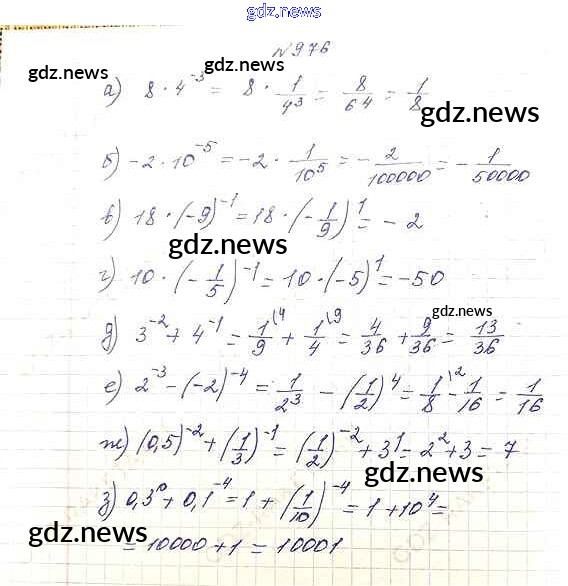 gdz.news
N976
gdz.news gdz.news
а) 8 · 4⁻³ = 8 · 1/4³ = 8/64 = 1/8
gdz.news
б) -2 · 10⁻⁵ = -2 · 1/10⁵ = - 2/100000 = - 1/50000
в) 18 · (-9)⁻¹ = 18 · (- 1/9)¹ = - 2
gdz.news
г) 10 · (- 1/5)⁻¹ = 10 · (-5)¹ = -50
gdz.news
д) 3⁻² + 4⁻¹ = 1/9 \⁴ + 1/4 \⁹ = 4/36 + 9/36 = 13/36
е) 2⁻³ - (-2)⁻⁴ = 1/2³ - (1/2)⁴ = 1/8 \² - 1/16 = 1/16
ж) (0,5)⁻² + (1/3)⁻¹ = (1/2)⁻² + 3¹ = 2² + 3 = 7
gdz.news
з) 0,3⁰ + 0,1⁻⁴ = 1 + (1/10)⁻⁴ = 1 + 10⁴ =
gdz.news gdz.news
= 10000 + 1 = 10001